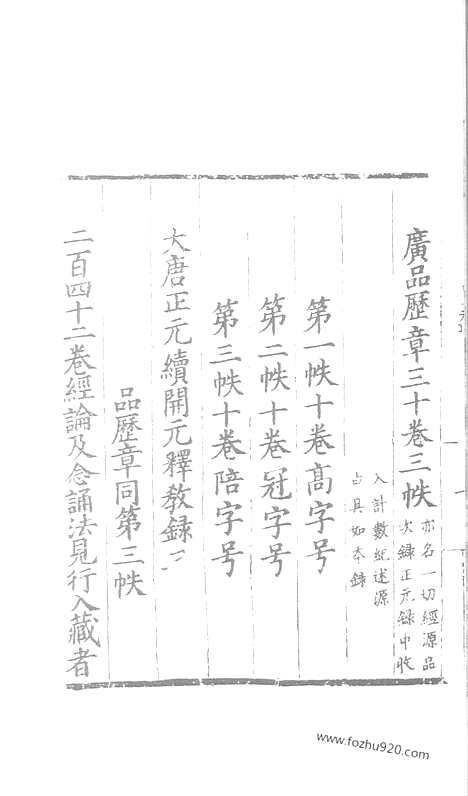 廣品歷章三十卷三帙
亦名一切經源品
次錄正元錄中收
入計數紙述源
具如本錄
第一帙十卷高字号
第二帙十卷冠字号
第三帙十卷陪字号
大唐正元續開元釋教録三
品歷章同第三帙
二百四十二卷經論及念誦法見行入藏者
www.fozhu920.com